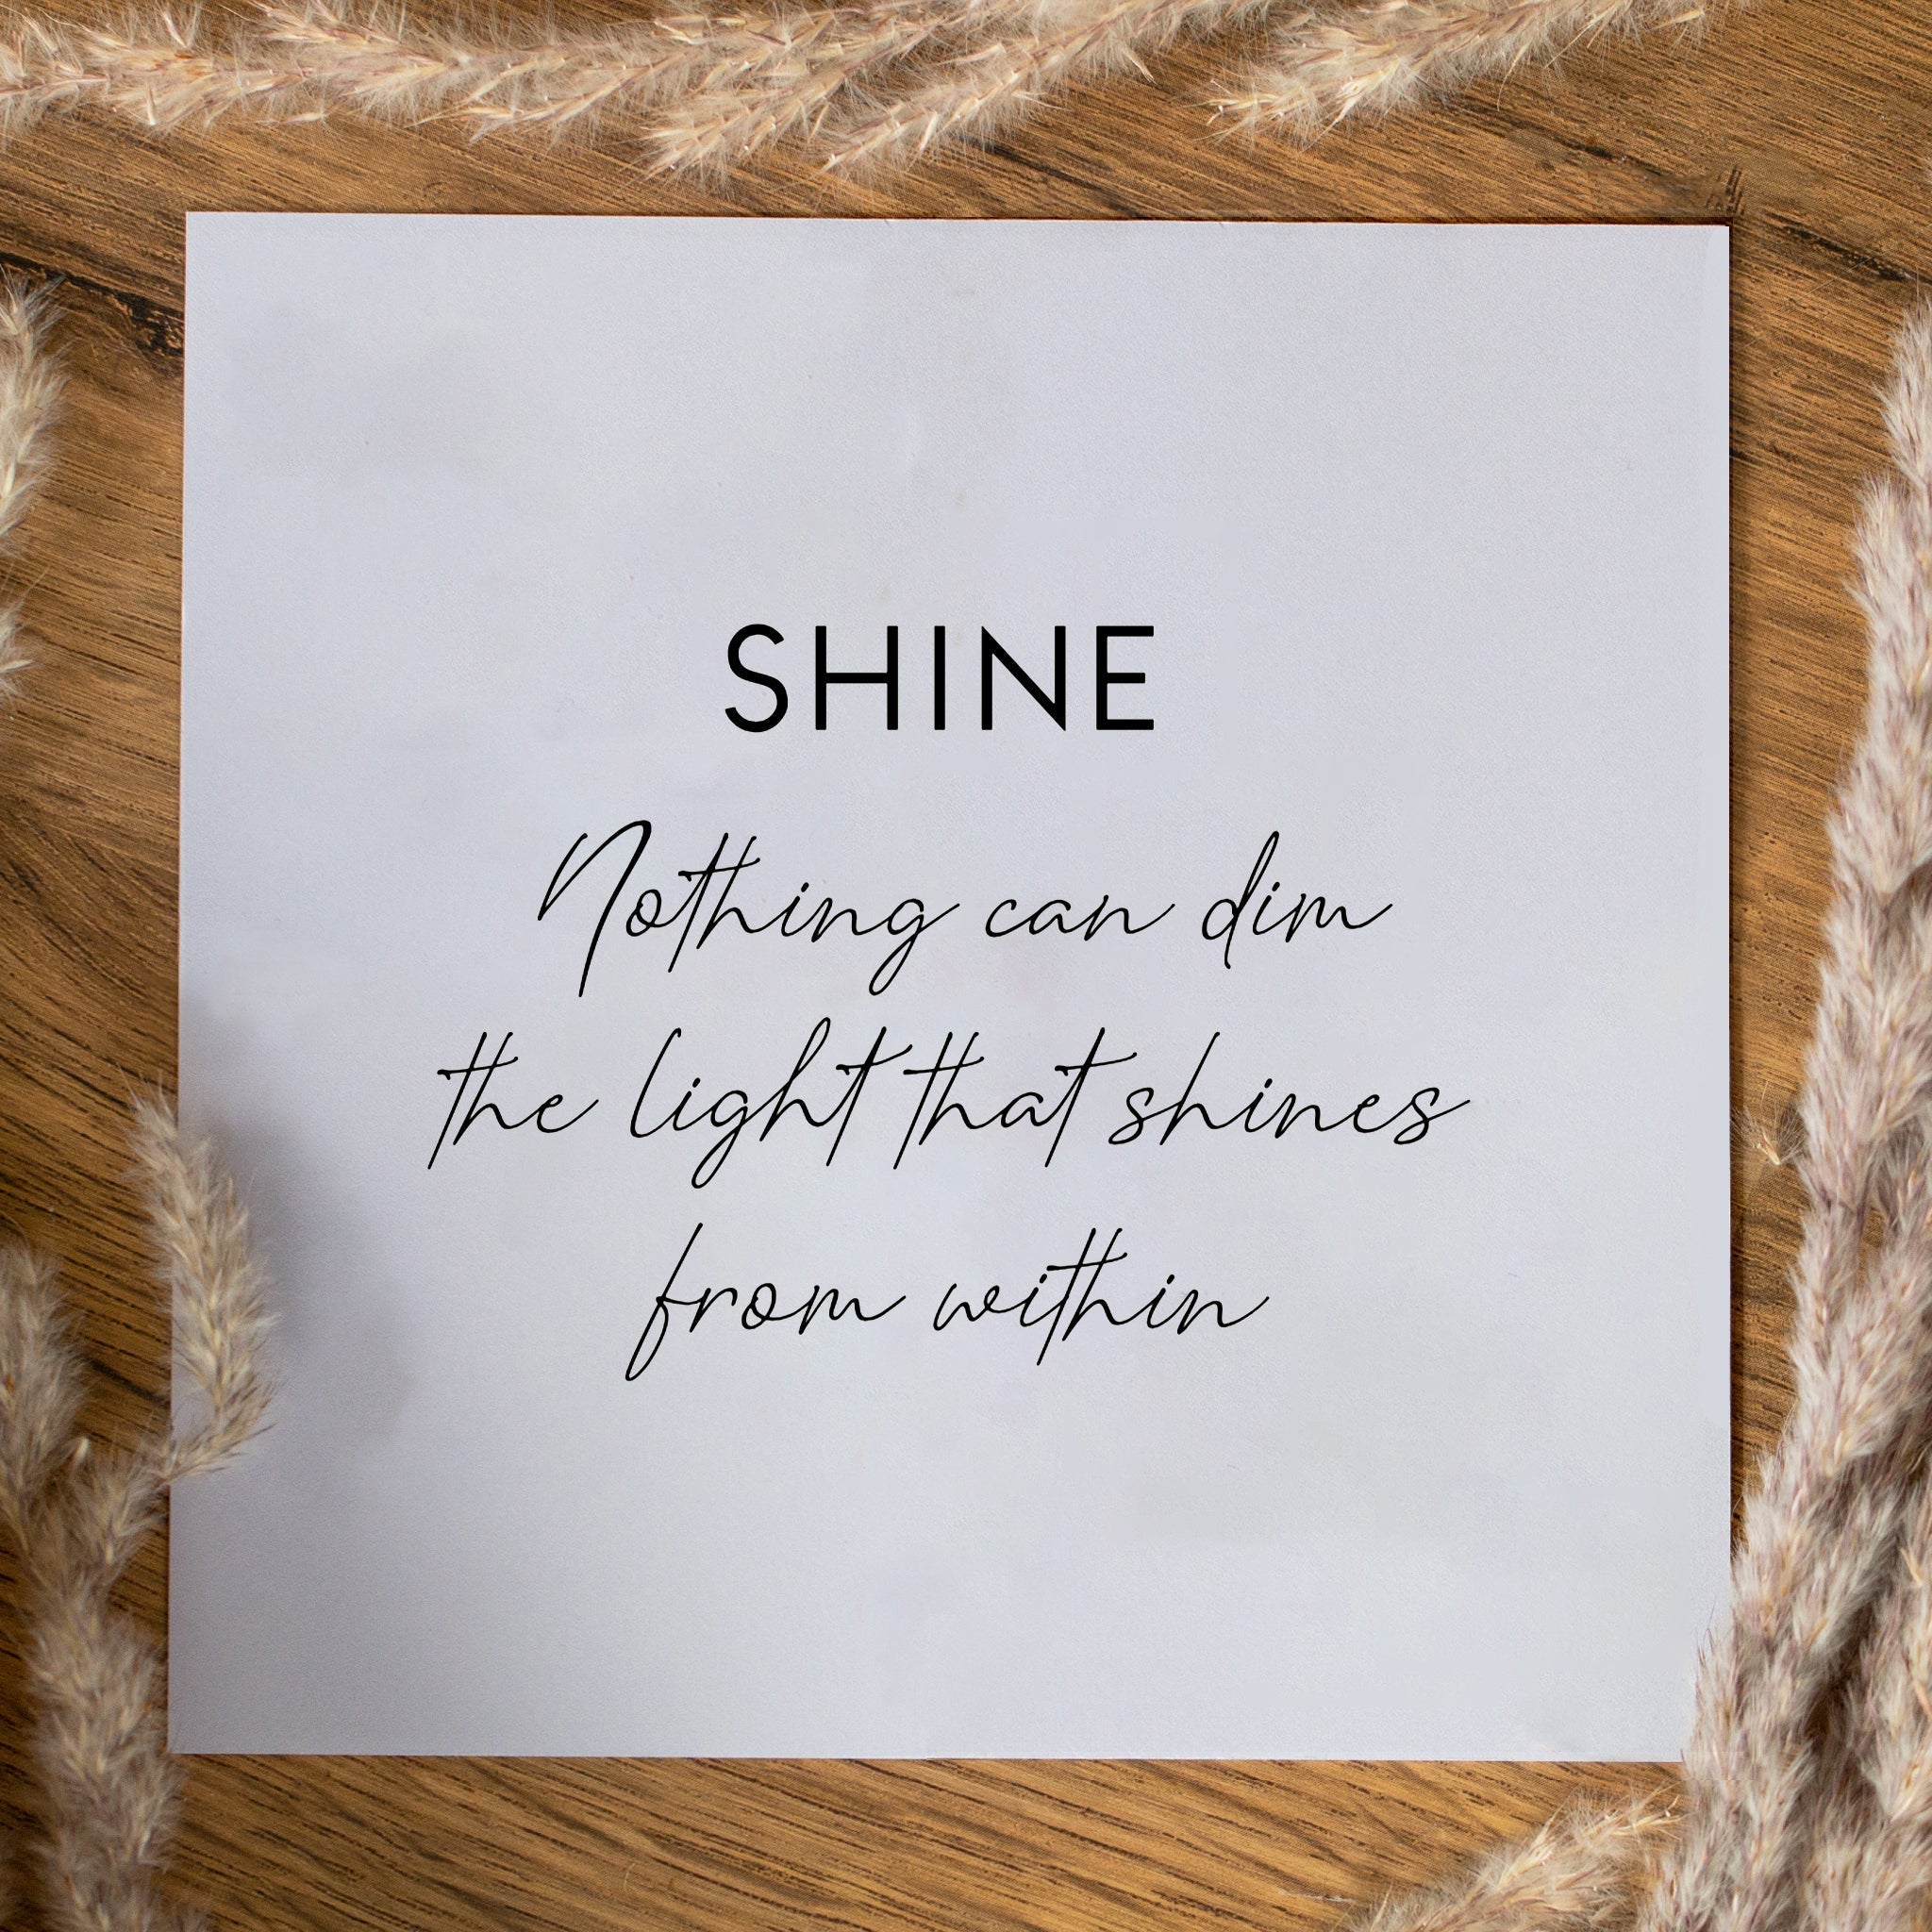 SHINE
Nothing can dim
the light that shines
from within